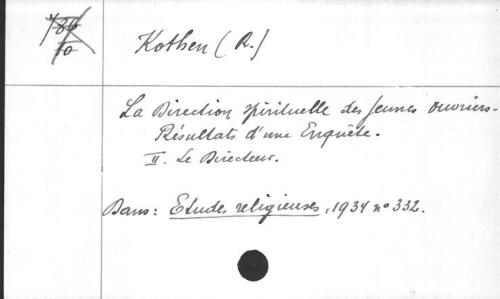 Kothen (R.)
La Direction spirituelle des jeunes ouvriers.
Résultats d'une Enquête.
II. Le Directeur.
Dans: Etudes religieuses, 1934 n° 332.